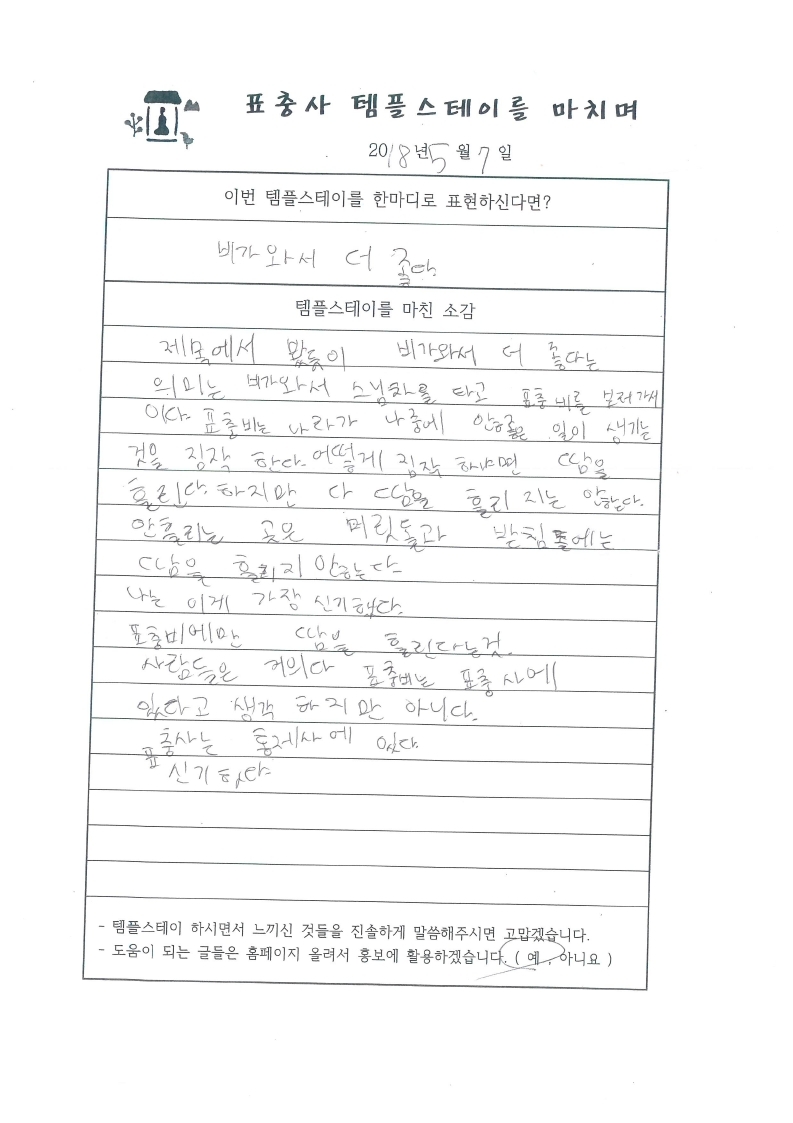 표충사 템플스테이를 마치며
2018년 5월 7일
이번 템플스테이를 한마디로 표현하신다면?
비가와서 더 좋다
템플스테이를 마친 소감
제목에서 봤듯이 비가와서 더 좋다는
의미는 비가와서 스님차를 타고 표충비를 보러가서
이다. 표충비는 나라가 나중에 안좋은 일이 생기는
것을 짐작 한다. 어떻게 짐작 하냐면 땀을
흘린다. 하지만 다 땀을 흘리 지는 안는다.
안흘리는 곳은 머릿돌과 받침돌에는
땀을 흘리지 안는다
나는 이게 가장 신기했다.
표충비에만 땀을 흘린다는것.
사람들은 거의다 표충비는 표충사에
있다고 생각 하지만 아니다.
표충사는 홍제사에 있다.
신기하다
- 템플스테이 하시면서 느끼신 것들을 진솔하게 말씀해주시면 고맙겠습니다.
- 도움이 되는 글들은 홈페이지 올려서 홍보에 활용하겠습니다. ( 예 , 아니요 )